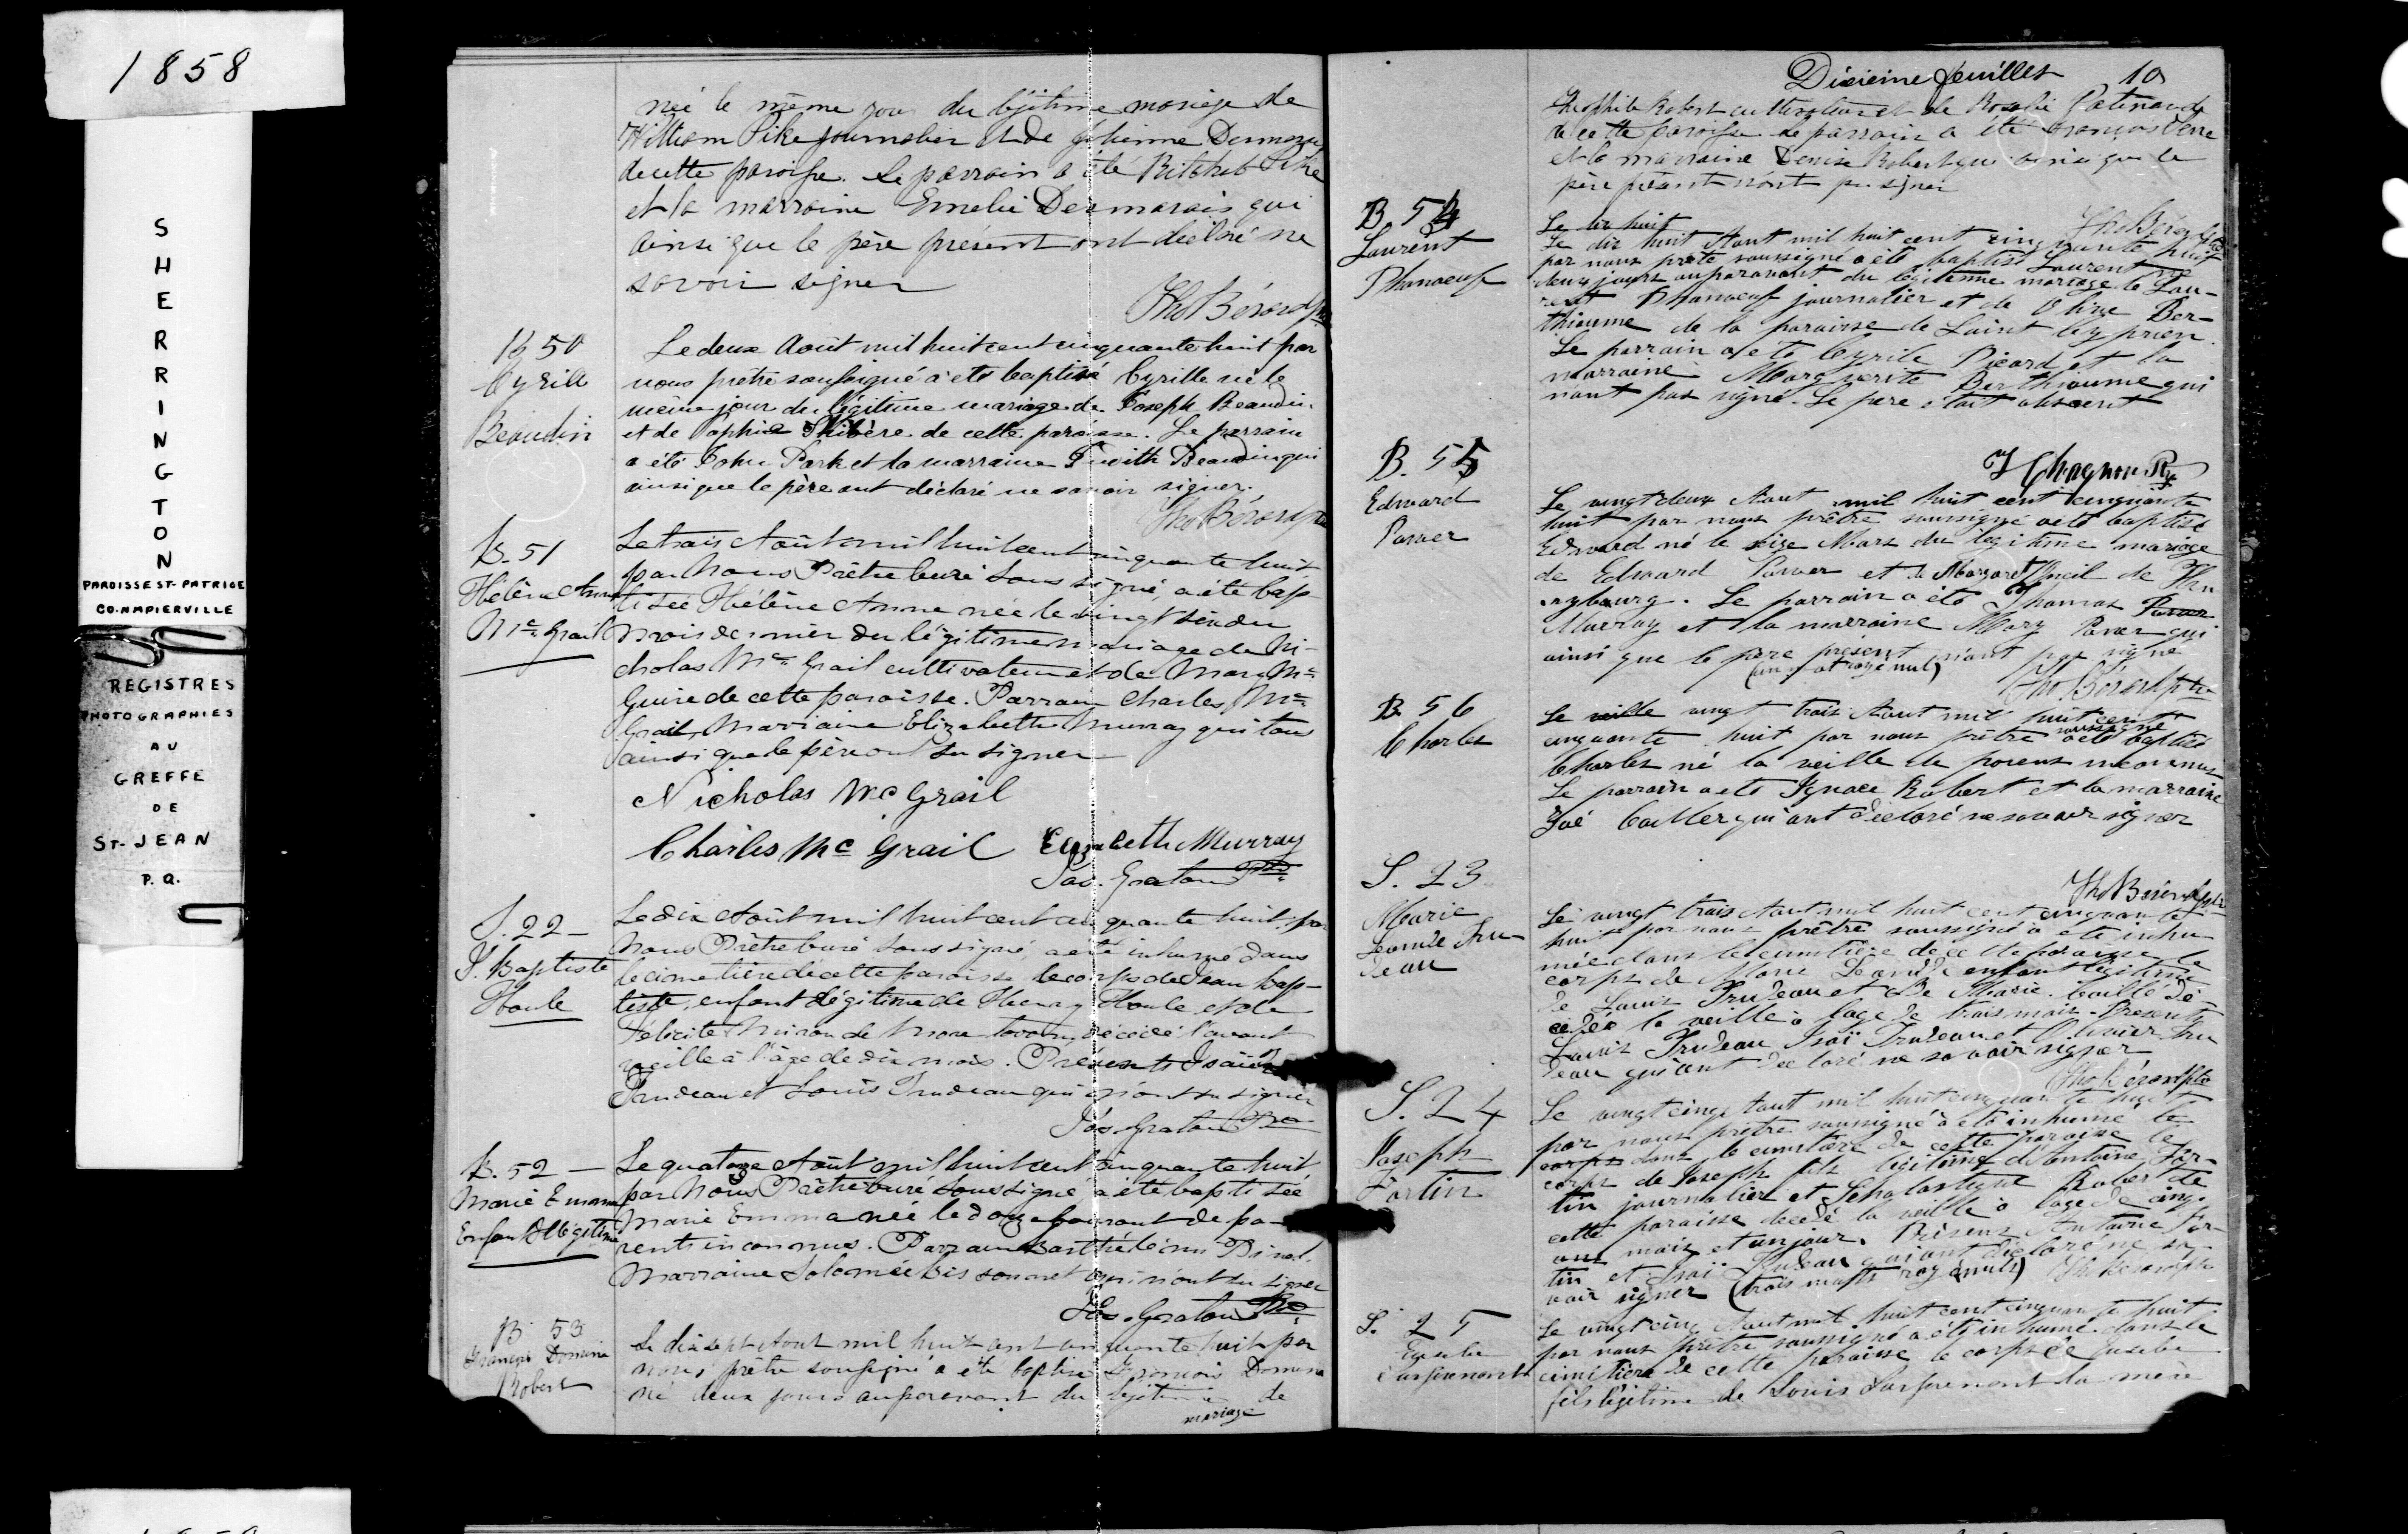 1858
SHERRINGTON
PAROISSE ST-PATRICE
CO. NAPIERVILLE
REGISTRES
PHOTOGRAPHIES
AU
GREFFE
DE
ST-JEAN
P.Q.
né le même jour du légitime mariage de
William Pike journalier et de
de cette paroisse. Le parrain a été Pike
et la marraine Emelie Desmarais qui
ainsi que le père présent ont déclaré ne
savoir signer
Tho Bérard ptre
B 50
Cyrille
Beaudin
Le deux Août mil huit cent cinquante huit par
nous prêtre soussigné a été baptisé Cyrille né le
même jour du légitime mariage de Joseph Beaudin
et de Sophie de cette paroisse. Le parrain
a été John Park et la marraine Beaudin qui
ainsi que le père ont déclaré ne savoir signer.
Tho Bérard ptre
B. 51
Hélène Anne
Mc Grail
Le trois Août mil huit cent cinquante huit
par Nous Prêtre Curé soussigné, a été bap-
tisée Hélène Anne née le vingt six du
mois dernier du légitime mariage de Ni-
cholas Mc Grail cultivateur et de Mary Mc
Guire de cette paroisse. Parrain Charles Mc
Grail, Marraine Elizabeth Murray qui tous
ainsi que le père ont su signer
Nicholas Mc Grail
Charles Mc Grail Elizabeth Murray
Jos. Graton Ptre
S. 22 -
J. Baptiste
Houle
Le dix Août mil huit cent cinquante huit par
Nous Prêtre Curé soussigné, a été inhumé dans
le cimetière de cette paroisse le corps de Jean Bap-
tiste, enfant légitime de Henry Houle et de
Félicité Miron de décédé l'avant
veille à l'âge de dix mois. Présents Isaïe
Trudeau et Louis Trudeau qui n'ont su signer
Jos. Graton Ptre
B. 52 -
Marie Emma
Enfant Illégitime
Le quatorze Août mil huit cent cinquante huit
par Nous Prêtre Curé soussigné a été baptisée
Marie Emma née le douze courant de pa-
rents inconnus. Parrain Barthélémi Pinal.
Marraine Salomée Bissonnet qui n'ont su signer
Jos. Graton Ptre
B 53
François Domina
Robert
Le dix sept Aout mil huit cent cinquante huit par
nous, prêtre soussigné a été baptisé François Domina
né deux jours auparavant du légitime de
mariage
Dixieme feuillet 10
Théophile Robert cultivateur et de Rosalie Patenaude
de cette paroisse Le parrain a été François
et la marraine Denise Robert qui ainsi que le
père présent n'ont pu signer
Tho Bérard ptre
B. 54
Laurent
Phanoeuf
Le dix huit
Le dix huit Aout mil huit cent cinquante huit
par nous prêtre soussigné a été baptisé Laurent né
deux jours auparavant du légitime mariage de Lau-
rent Phanoeuf journalier et de Oline Ber-
thiaume de la paroisse de Saint Cyprien.
Le parrain a été Cyrile Picard et la
marraine Marguerite Berthiaume qui
n'ont pas signé. Le père était absent
J Chagnon Ptre
B. 55
Edward
Power
Le vingt deux Aout mil huit cent cinquante
huit par nous prêtre soussigné a été baptisé
Edward né le seize Mars du légitime mariage
de Edward Power et de Margaret de
Le parrain a été Thomas Power
Murray et la marraine Mary Power qui
ainsi que le père présent n'ont pas signé
(un mot rayé nul)
Tho Bérard ptre
B. 56
Charles
Le veille vingt trois Aout mil huit cent
cinquante huit par nous prêtre soussigné a été baptisé
Charles né la veille de parens inconnus
Le parrain a été Ignace Robert et la marraine
Zoé qui ont déclaré ne savoir signer
Tho Bérard ptre
S. 23
Marie
Leonide Tru-
deau
Le vingt trois Aout mil huit cent cinquante
huit par nous prêtre soussigné a été inhu-
mée dans le cimetière de cette paroisse le
corps de Marie Leonide enfant légitime
de Louis Trudeau et de Marie Caillé dé-
cédée la veille à l'age de trois mois. Présents
Louis Trudeau Isaï Trudeau et Olivier Tru
deau qui ont déclaré ne savoir signer
Tho Bérard ptre
S. 24
Joseph
Fortin
Le vingt cinq Aout mil huit cinquante huit
par nous prêtre soussigné a été inhumé le
corps dans le cimetière de cette paroisse le
corps de Joseph fils légitime d'Antoine For-
tin journalier et Scholastique Robert de
cette paroisse décédé la veille à l'age de cinq
ans mois et un jour. Présens Antoine For-
tin et Isaï Trudeau qui ont déclaré ne sa-
voir signer (trois mots rayés nuls) Tho Bérard ptre
S. 25
Eusebe
Le vingt cinq Aout mil huit cent cinquante huit
par nous prêtre soussigné a été inhumé dans le
cimetière de cette paroisse le corps de Eusebe
fils légitime de Louis la mère